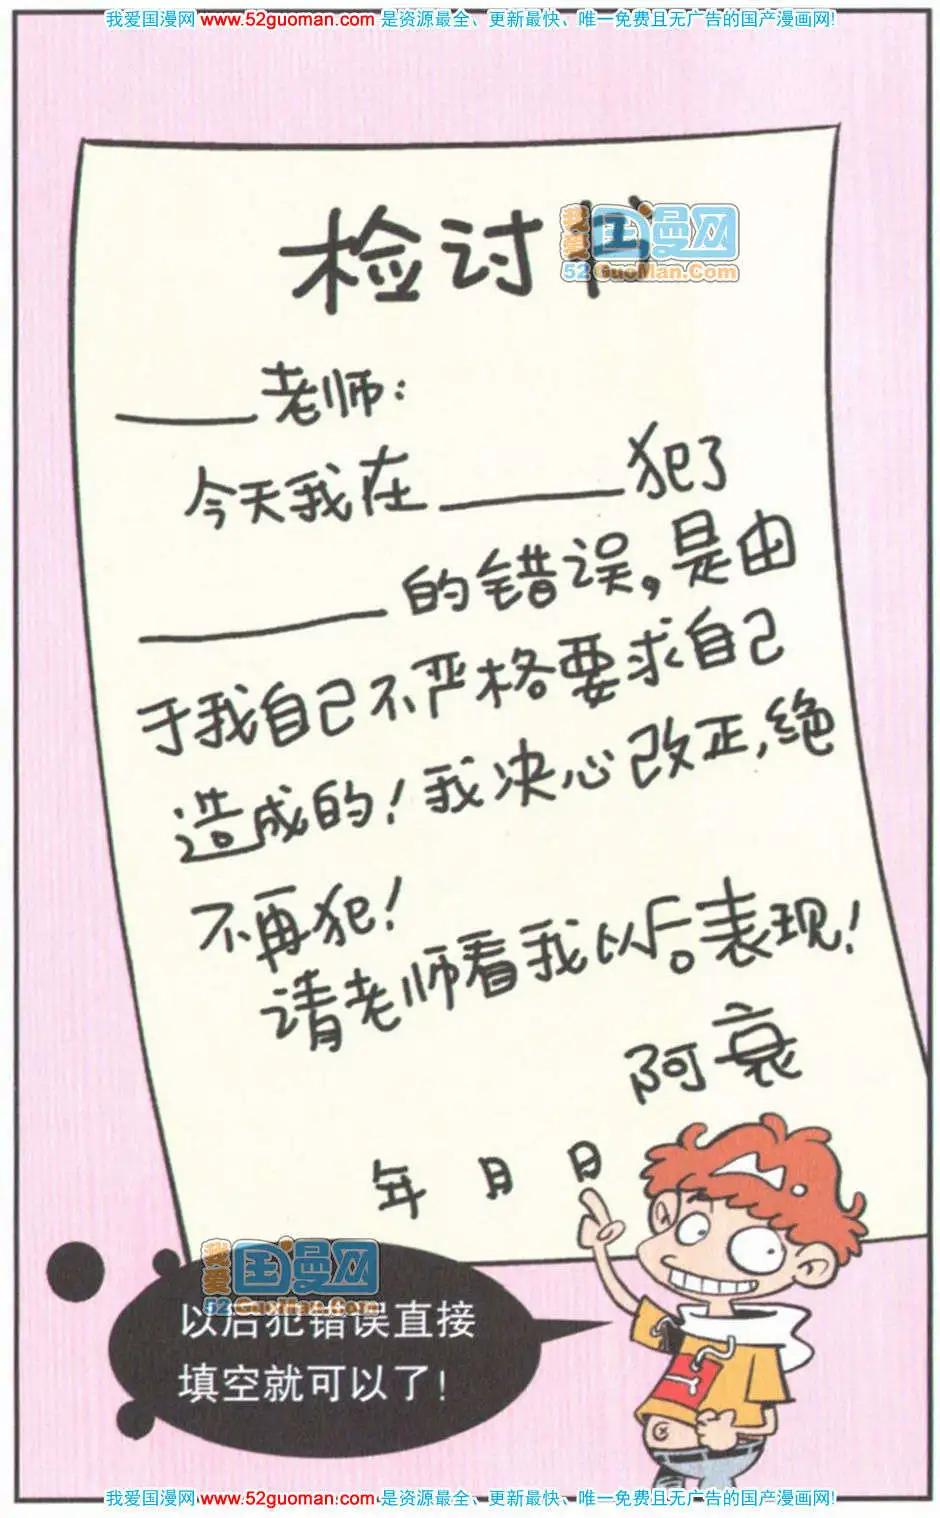 我爱国漫网 www.52guoman.com 是资源最全、更新最快、唯一免费且无广告的国产漫画网!
检讨书
我爱国漫网
52GuoMan.Com
____老师:
今天我在______犯了
________的错误,是由
于我自己不严格要求自己
造成的!我决心改正,绝
不再犯!
请老师看我以后表现!
阿衰
年 月 日
我爱国漫网
52GuoMan.Com
以后犯错误直接
填空就可以了!
我爱国漫网 www.52guoman.com 是资源最全、更新最快、唯一免费且无广告的国产漫画网!